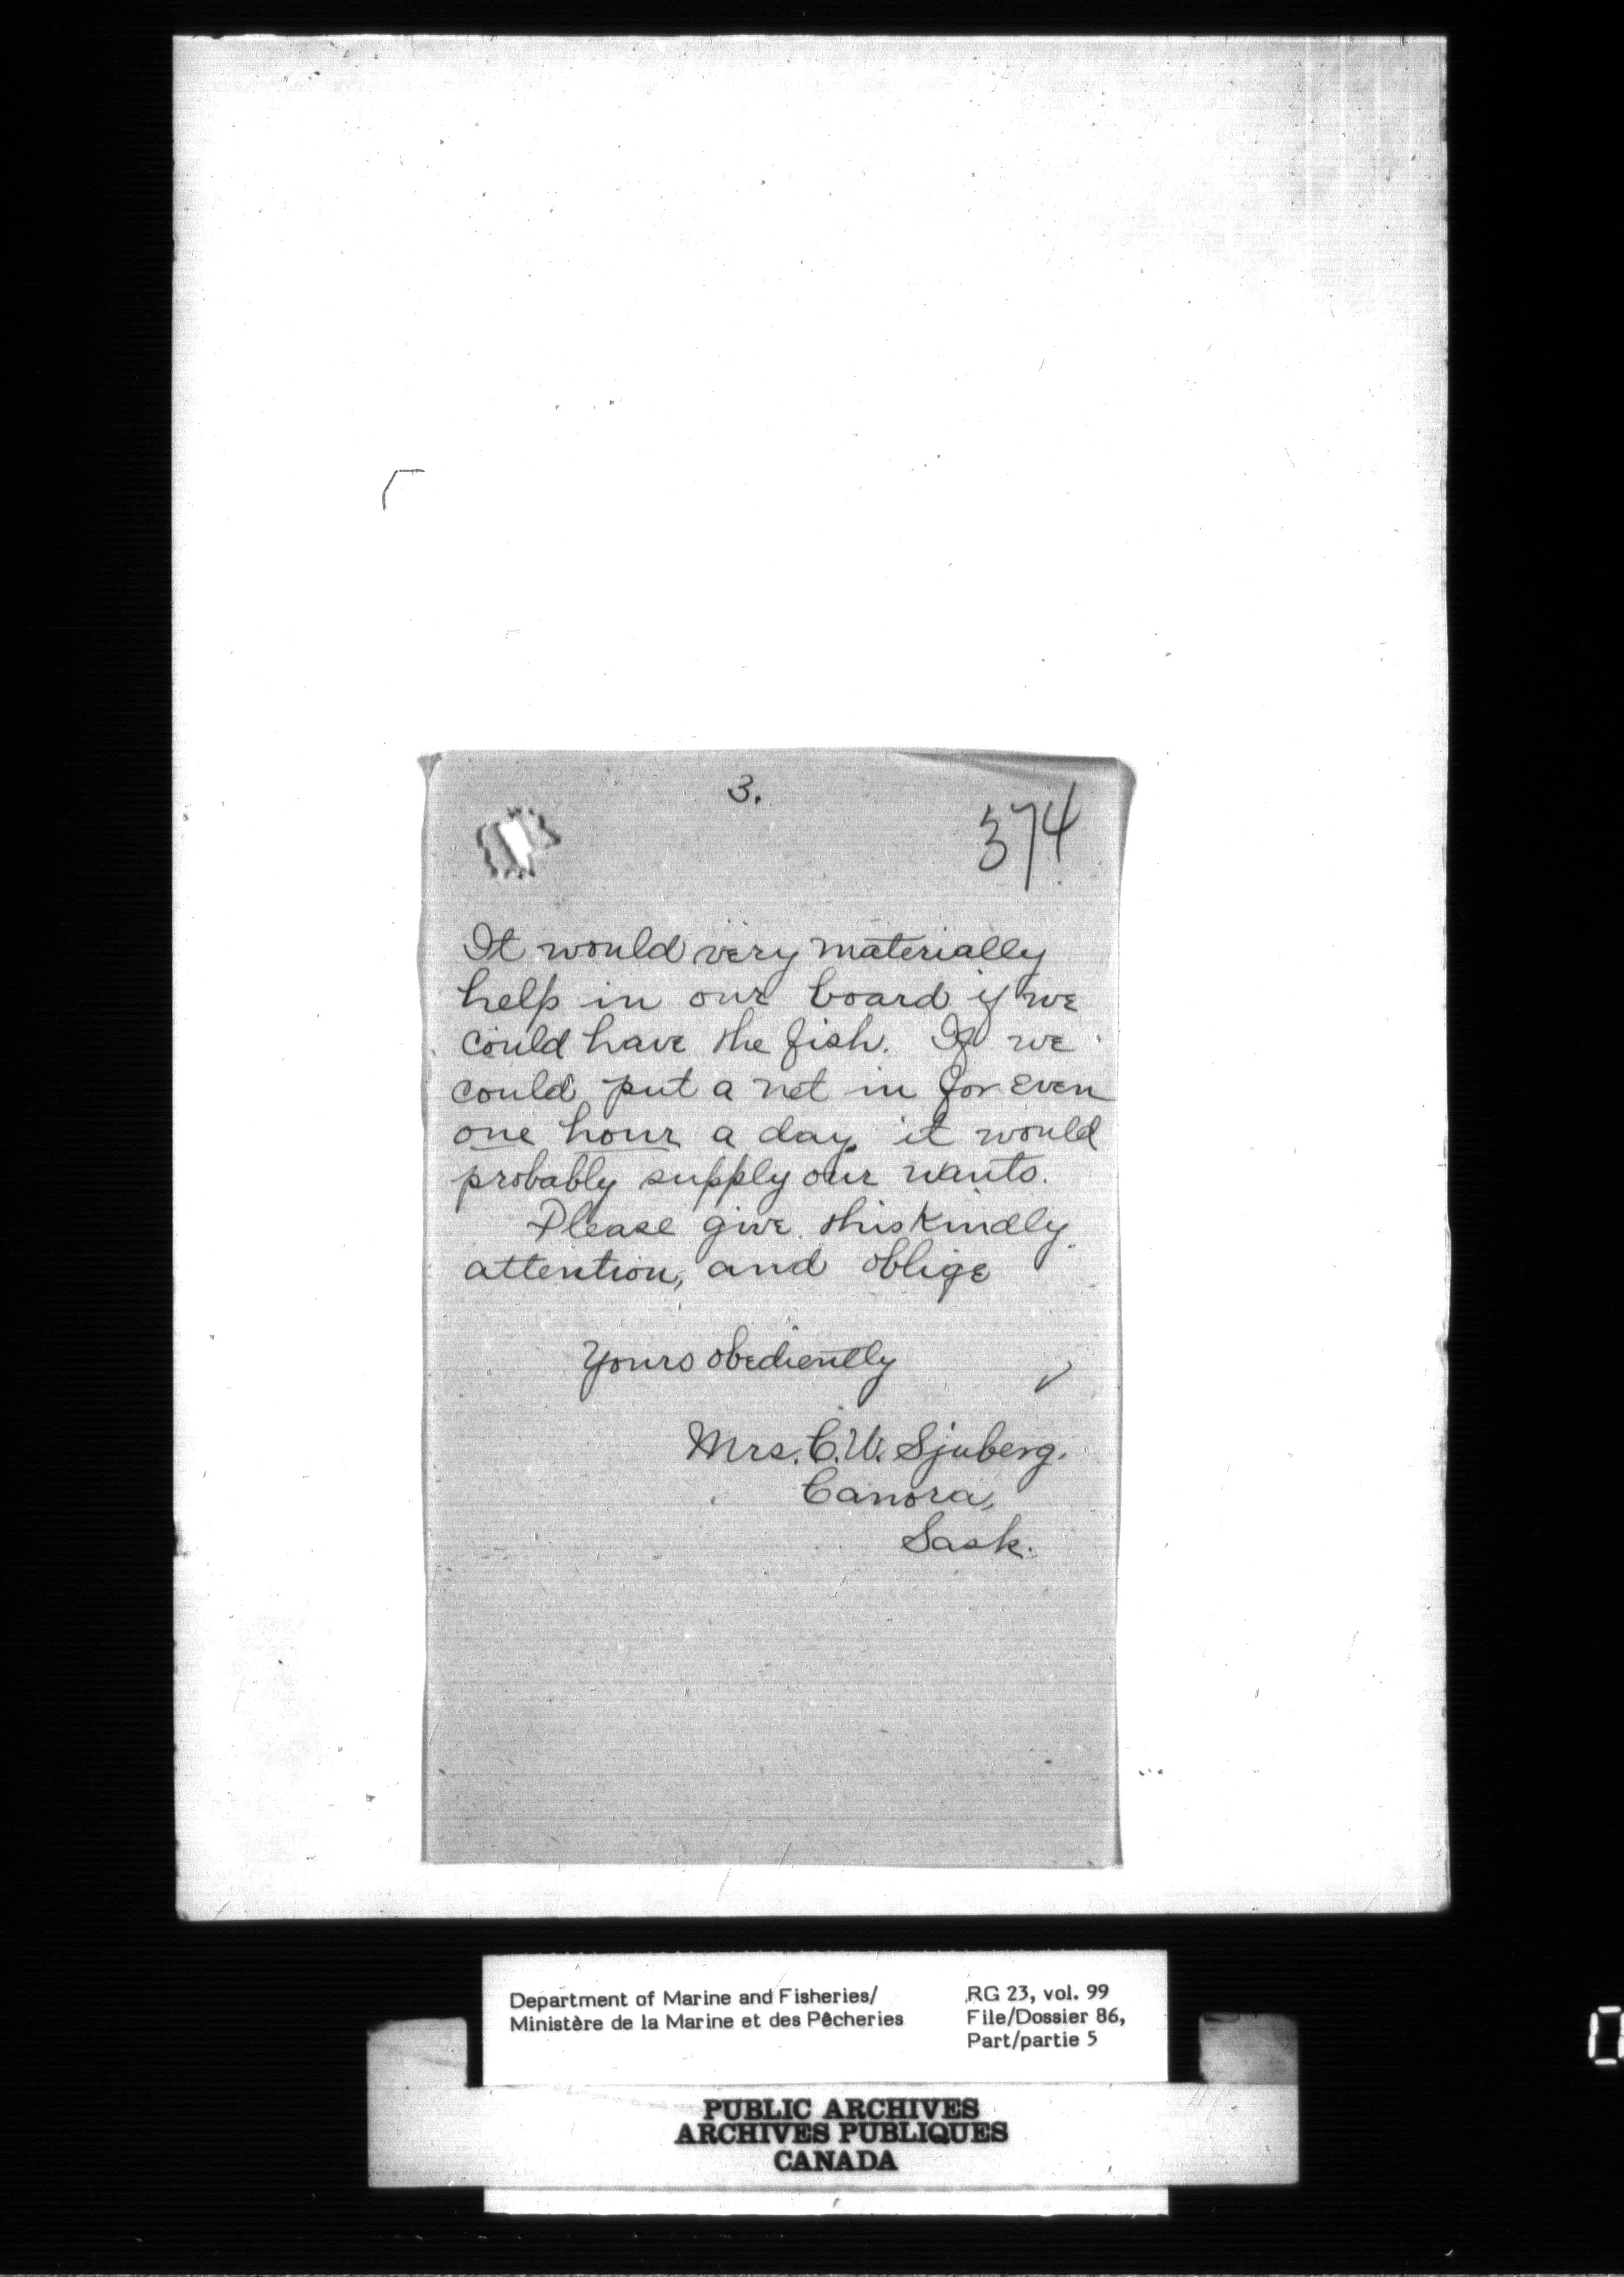 3.
374
It would very materially
help in our board if we
could have the fish. If we
could put a net in for even
one hour a day, it would
probably supply our wants.
Please give this kindly
attention, and oblige
Yours obediently
Mrs. C. W. Sjuberg.
Canora,
Sask.
Department of Marine and Fisheries/
Ministère de la Marine et des Pêcheries
RG 23, vol. 99
File/Dossier 86,
Part/partie 5
PUBLIC ARCHIVES
ARCHIVES PUBLIQUES
CANADA